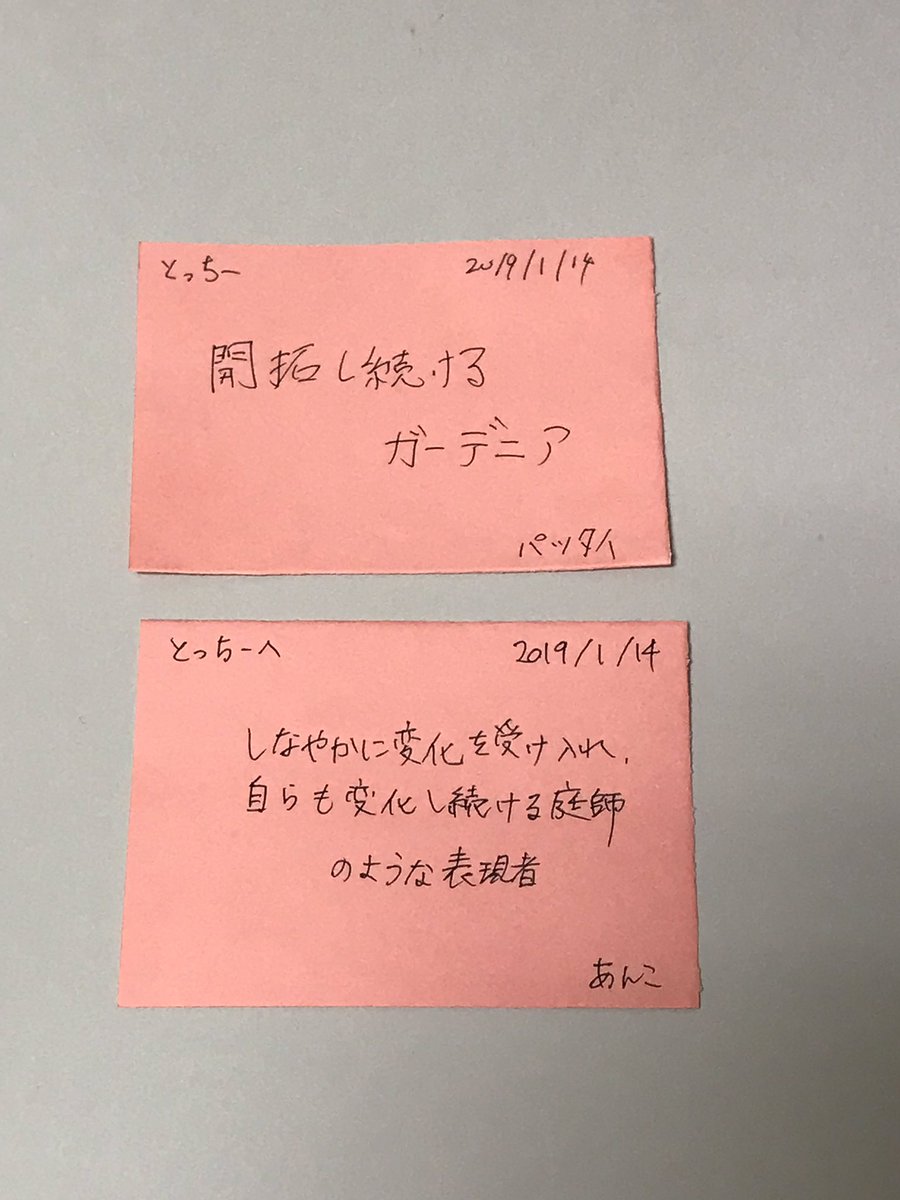 とっちー 2019/1/14
開拓し続ける
ガーデニア
パッタイ
とっちーへ 2019/1/14
しなやかに変化を受け入れ、
自らも変化し続ける庭師
のような表現者
あんこ